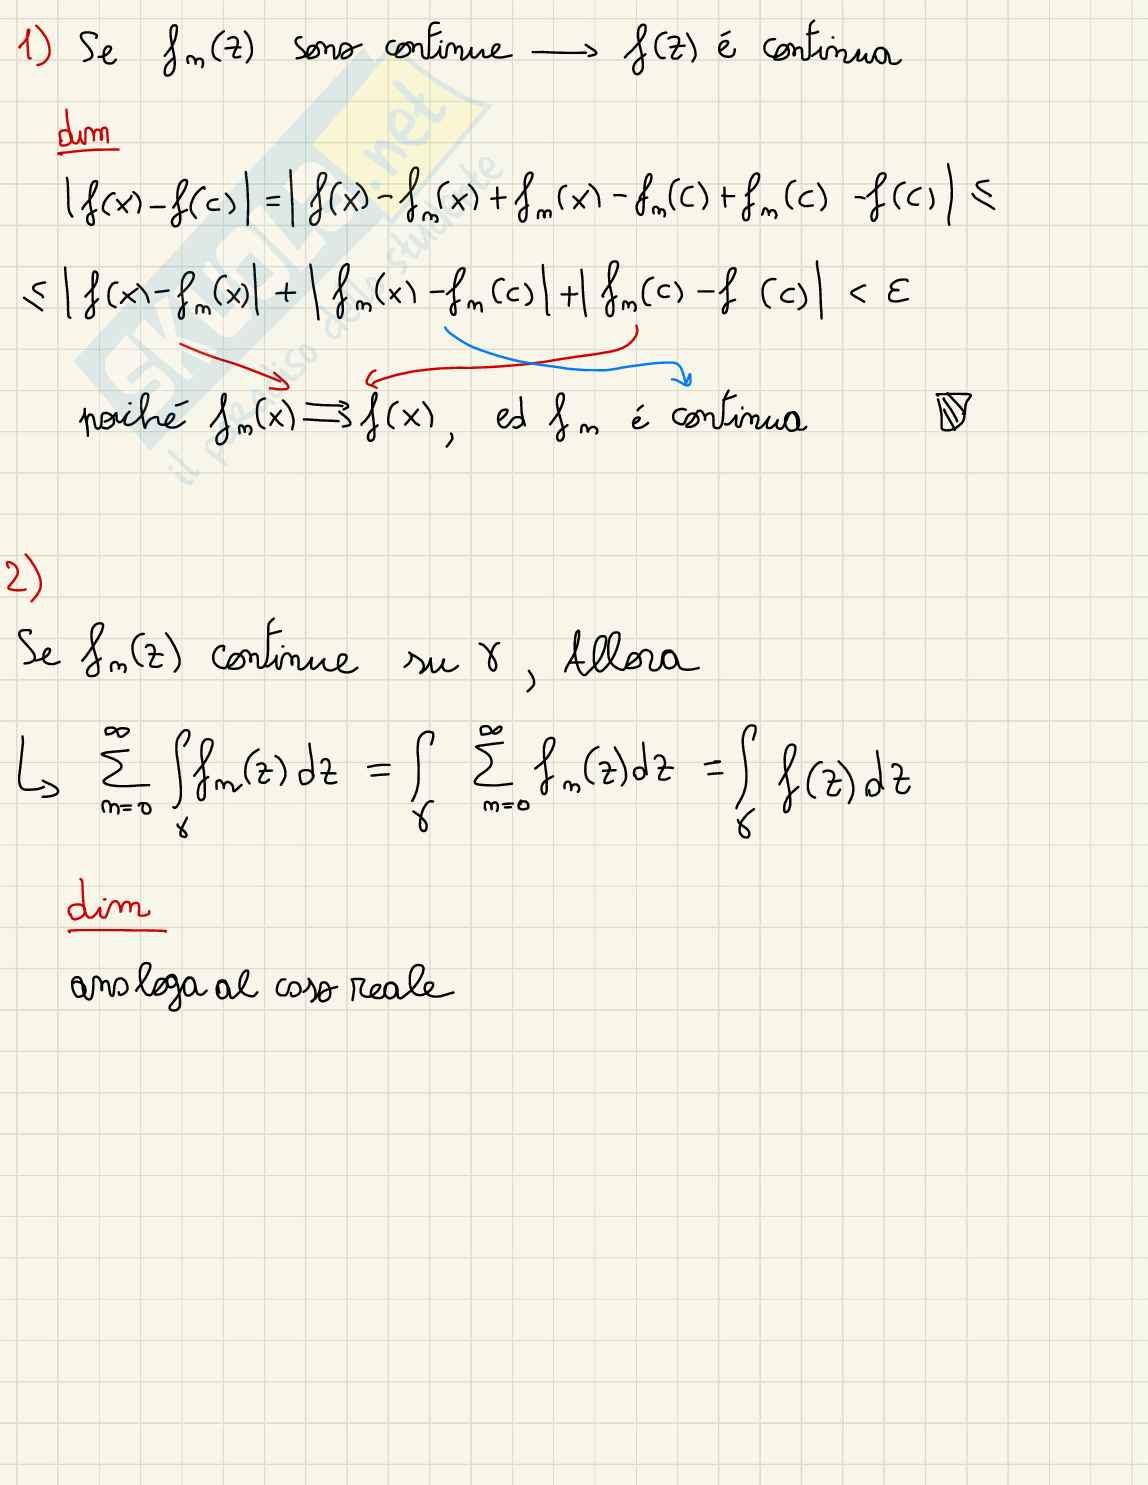 1) Se fₙ(z) sono continue ⟶ f(z) é continua
dim
|f(x)-f(c)| = |f(x)-fₙ(x)+fₙ(x)-fₙ(c)+fₙ(c) -f(c)| ≤
≤ |f(x)-fₙ(x)| + |fₙ(x)-fₙ(c)| + |fₙ(c)-f (c)| < ε
poiché fₙ(x) ⇉ f(x), ed fₙ é continua
2)
Se fₙ(z) continue su γ, Allora
↳ ∑_{n=0}^{∞} ∫_γ fₙ(z) dz = ∫_γ ∑_{n=0}^{∞} fₙ(z) dz = ∫_γ f(z) dz
dim
analoga al caso reale
SKUOLA.net
il paradiso dello studente